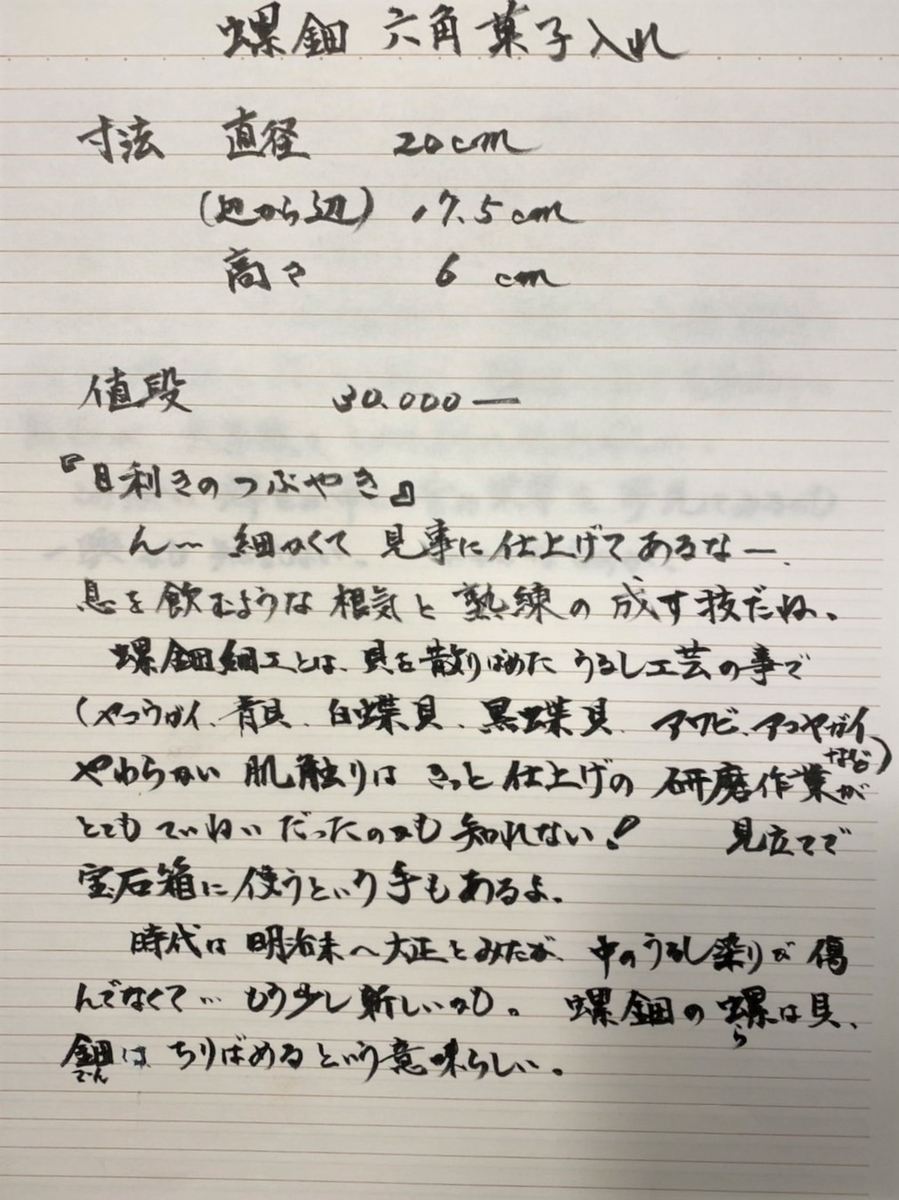 螺鈿 六角菓子入れ
寸法 直径 20cm
(辺から辺) 17.5cm
高さ 6cm
値段 30.000―
『目利きのつぶやき』
ん〜 細かくて 見事に仕上げてあるなー、
息を飲むような根気と熟練の成す技だね。
螺鈿細工とは、貝を散りばめた うるし工芸の事で
(ヤコウガイ、青貝、白蝶貝、黒蝶貝、アワビ、アコヤガイ
など)
やわらかい 肌触りは きっと 仕上げの 研磨作業が
とても ていねいだったのかも 知れない! 見立てで
宝石箱に使うという手もあるよ。
時代は 明治末〜大正とみたが、中のうるし塗りが 傷
んでなくて… もう少し新しいかも。 螺鈿の螺は貝、
ら
鈿は ちりばめるという意味らしい。
でん